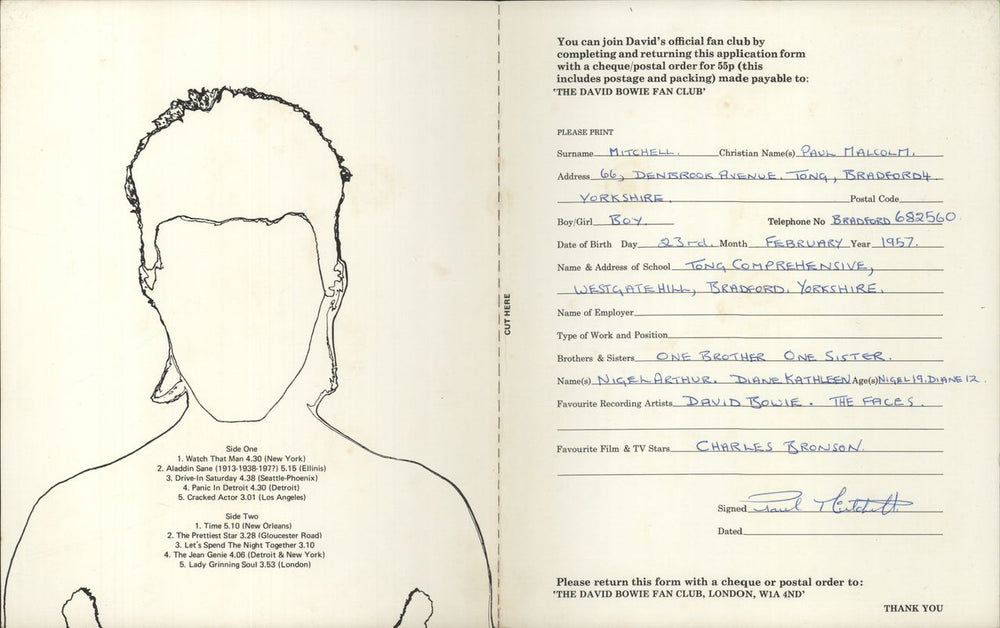 Side One
1. Watch That Man 4.30 (New York)
2. Aladdin Sane (1913-1938-197?) 5.15 (Ellinis)
3. Drive-In Saturday 4.38 (Seattle-Phoenix)
4. Panic In Detroit 4.30 (Detroit)
5. Cracked Actor 3.01 (Los Angeles)
Side Two
1. Time 5.10 (New Orleans)
2. The Prettiest Star 3.28 (Gloucester Road)
3. Let's Spend The Night Together 3.10
4. The Jean Genie 4.06 (Detroit & New York)
5. Lady Grinning Soul 3.53 (London)
CUT HERE
You can join David's official fan club by
completing and returning this application form
with a cheque/postal order for 55p (this
includes postage and packing) made payable to:
'THE DAVID BOWIE FAN CLUB'
PLEASE PRINT
Surname MITCHELL. Christian Name(s) PAUL MALCOLM.
Address 66, DENBROOK AVENUE. TONG, BRADFORD 4.
YORKSHIRE. Postal Code
Boy/Girl BOY. Telephone No BRADFORD 682560.
Date of Birth Day 23rd. Month FEBRUARY Year 1957.
Name & Address of School TONG COMPREHENSIVE,
WESTGATE HILL, BRADFORD. YORKSHIRE.
Name of Employer
Type of Work and Position
Brothers & Sisters ONE BROTHER ONE SISTER.
Name(s) NIGEL ARTHUR. DIANE KATHLEEN Age(s) NIGEL 19. DIANE 12.
Favourite Recording Artists DAVID BOWIE. THE FACES.
Favourite Film & TV Stars CHARLES BRONSON.
Signed Paul Mitchell
Dated
Please return this form with a cheque or postal order to:
'THE DAVID BOWIE FAN CLUB, LONDON, W1A 4ND'
THANK YOU